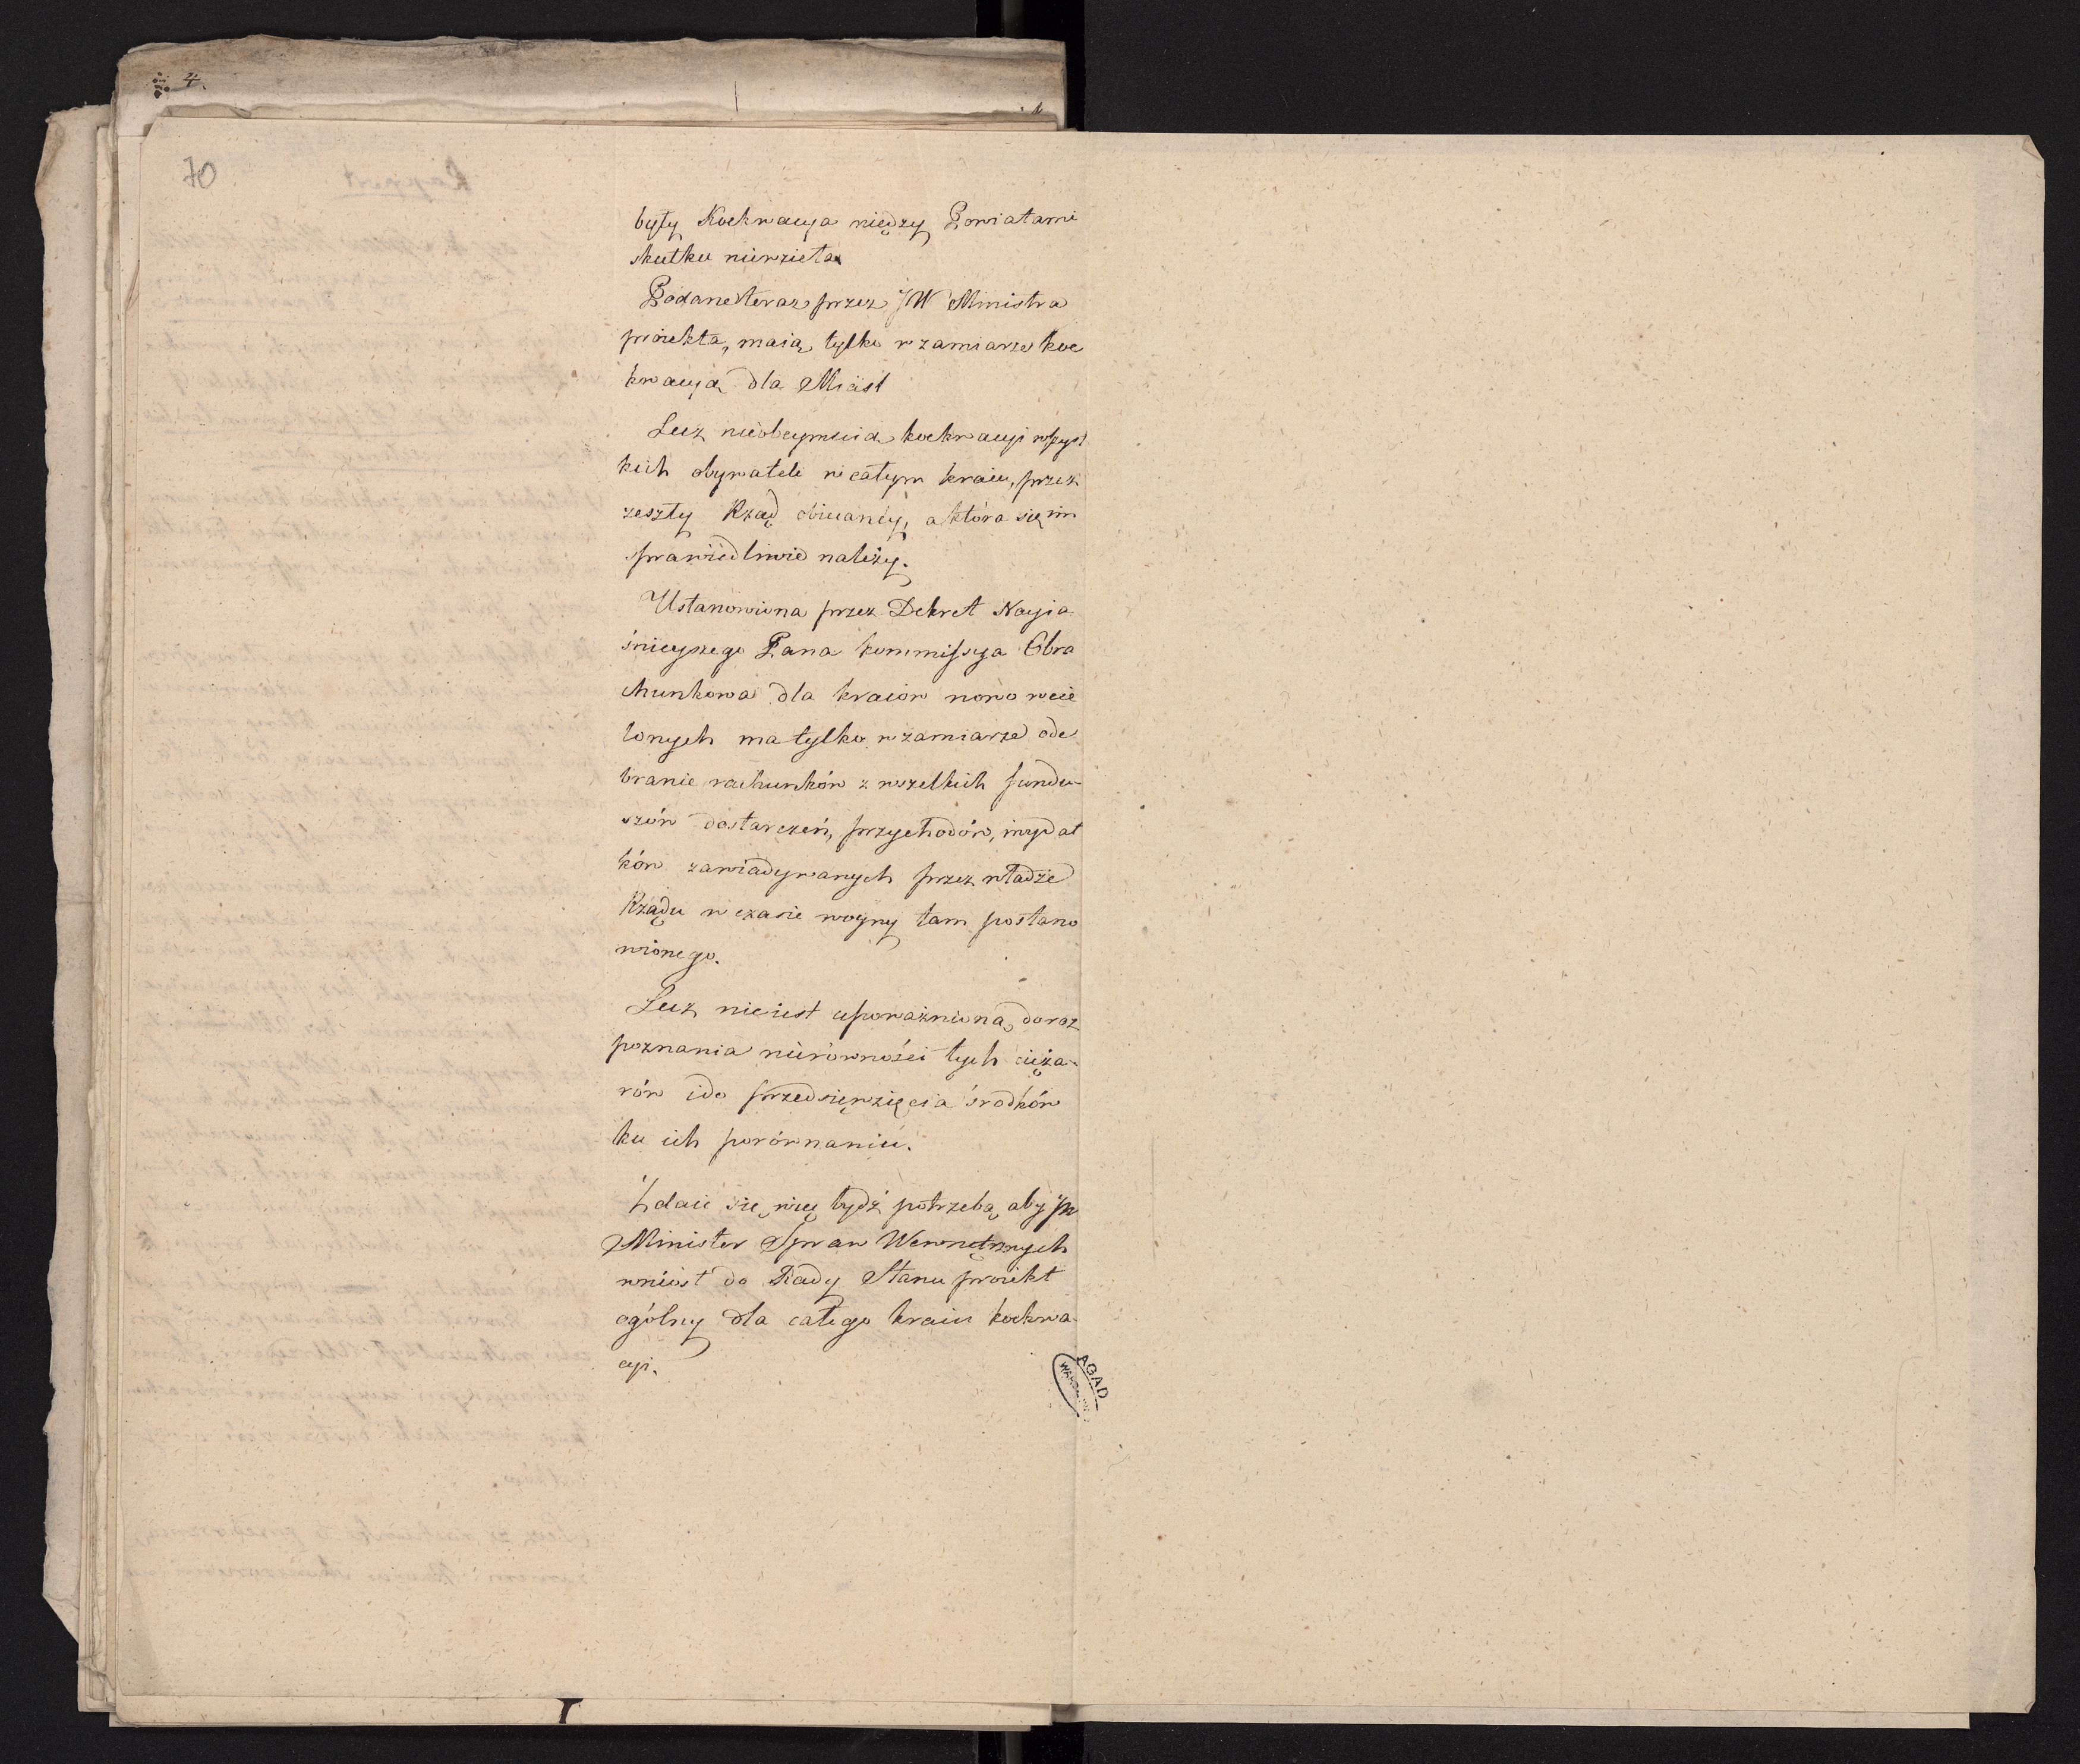 4.
70
były Koekwacya między Powiatami
skutku niewzieła
Podane teraz przez JW Ministra
proiekta, maią tylko w zamiarze koe
kwacyą dla Miast
Lecz nieobeymuią koekwacyi wszyst
kich obywateli w całym kraiu, przez
zeszły Rząd obiecaney, a która się im
sprawiedliwie należy.
Ustanowiona przez Dekret Nayia
śnieyszego Pana kommissya Obra
chunkowa dla kraiów nowo wcie
lonych ma tylko w zamiarze ode
branie rachunków z wszelkich fundu-
szów dostarczeń, przychodów, i wydat
ków zawiadywanych przez władze
Rządu w czasie woyny tam postano
wionego.
Lecz nie iest upoważniona, do roz
poznania nierówności tych cięża-
rów i do przedsięwzięcia środków
ku ich porównaniu.
Zdaie się więc bydź potrzebą aby JW
Minister Spraw Wewnętrznych
wniósł do Rady Stanu proiekt
ogólny dla całego kraiu koekwa-
cyi.
AGAD